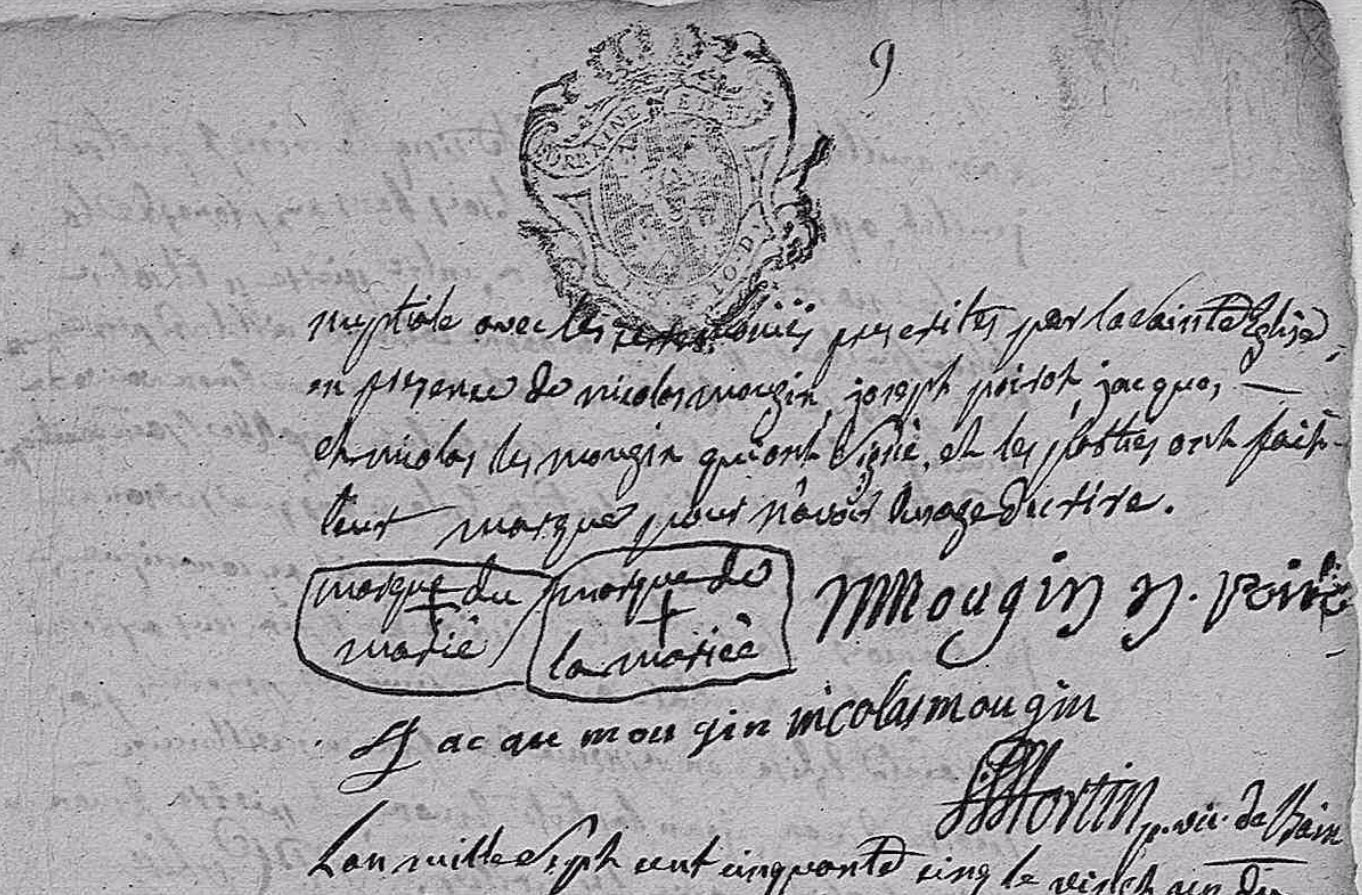 9
LORRAINE ET B
nuptiale avec les ceremonies prescrites par la Sainte Eglise,
en presence de nicolas mougin, joseph poirot, jacque,
et nicolas les mougin qui ont Signé, et les parties ont fait
leur marque pour n'avoir lusage decrire.
marque du marié
marque de la mariée
Mougin
Jacque mougin nicolas mougin
Mortin p. vic. de Bain
Lan mille Sept cent cinquante cinq le vingt un de